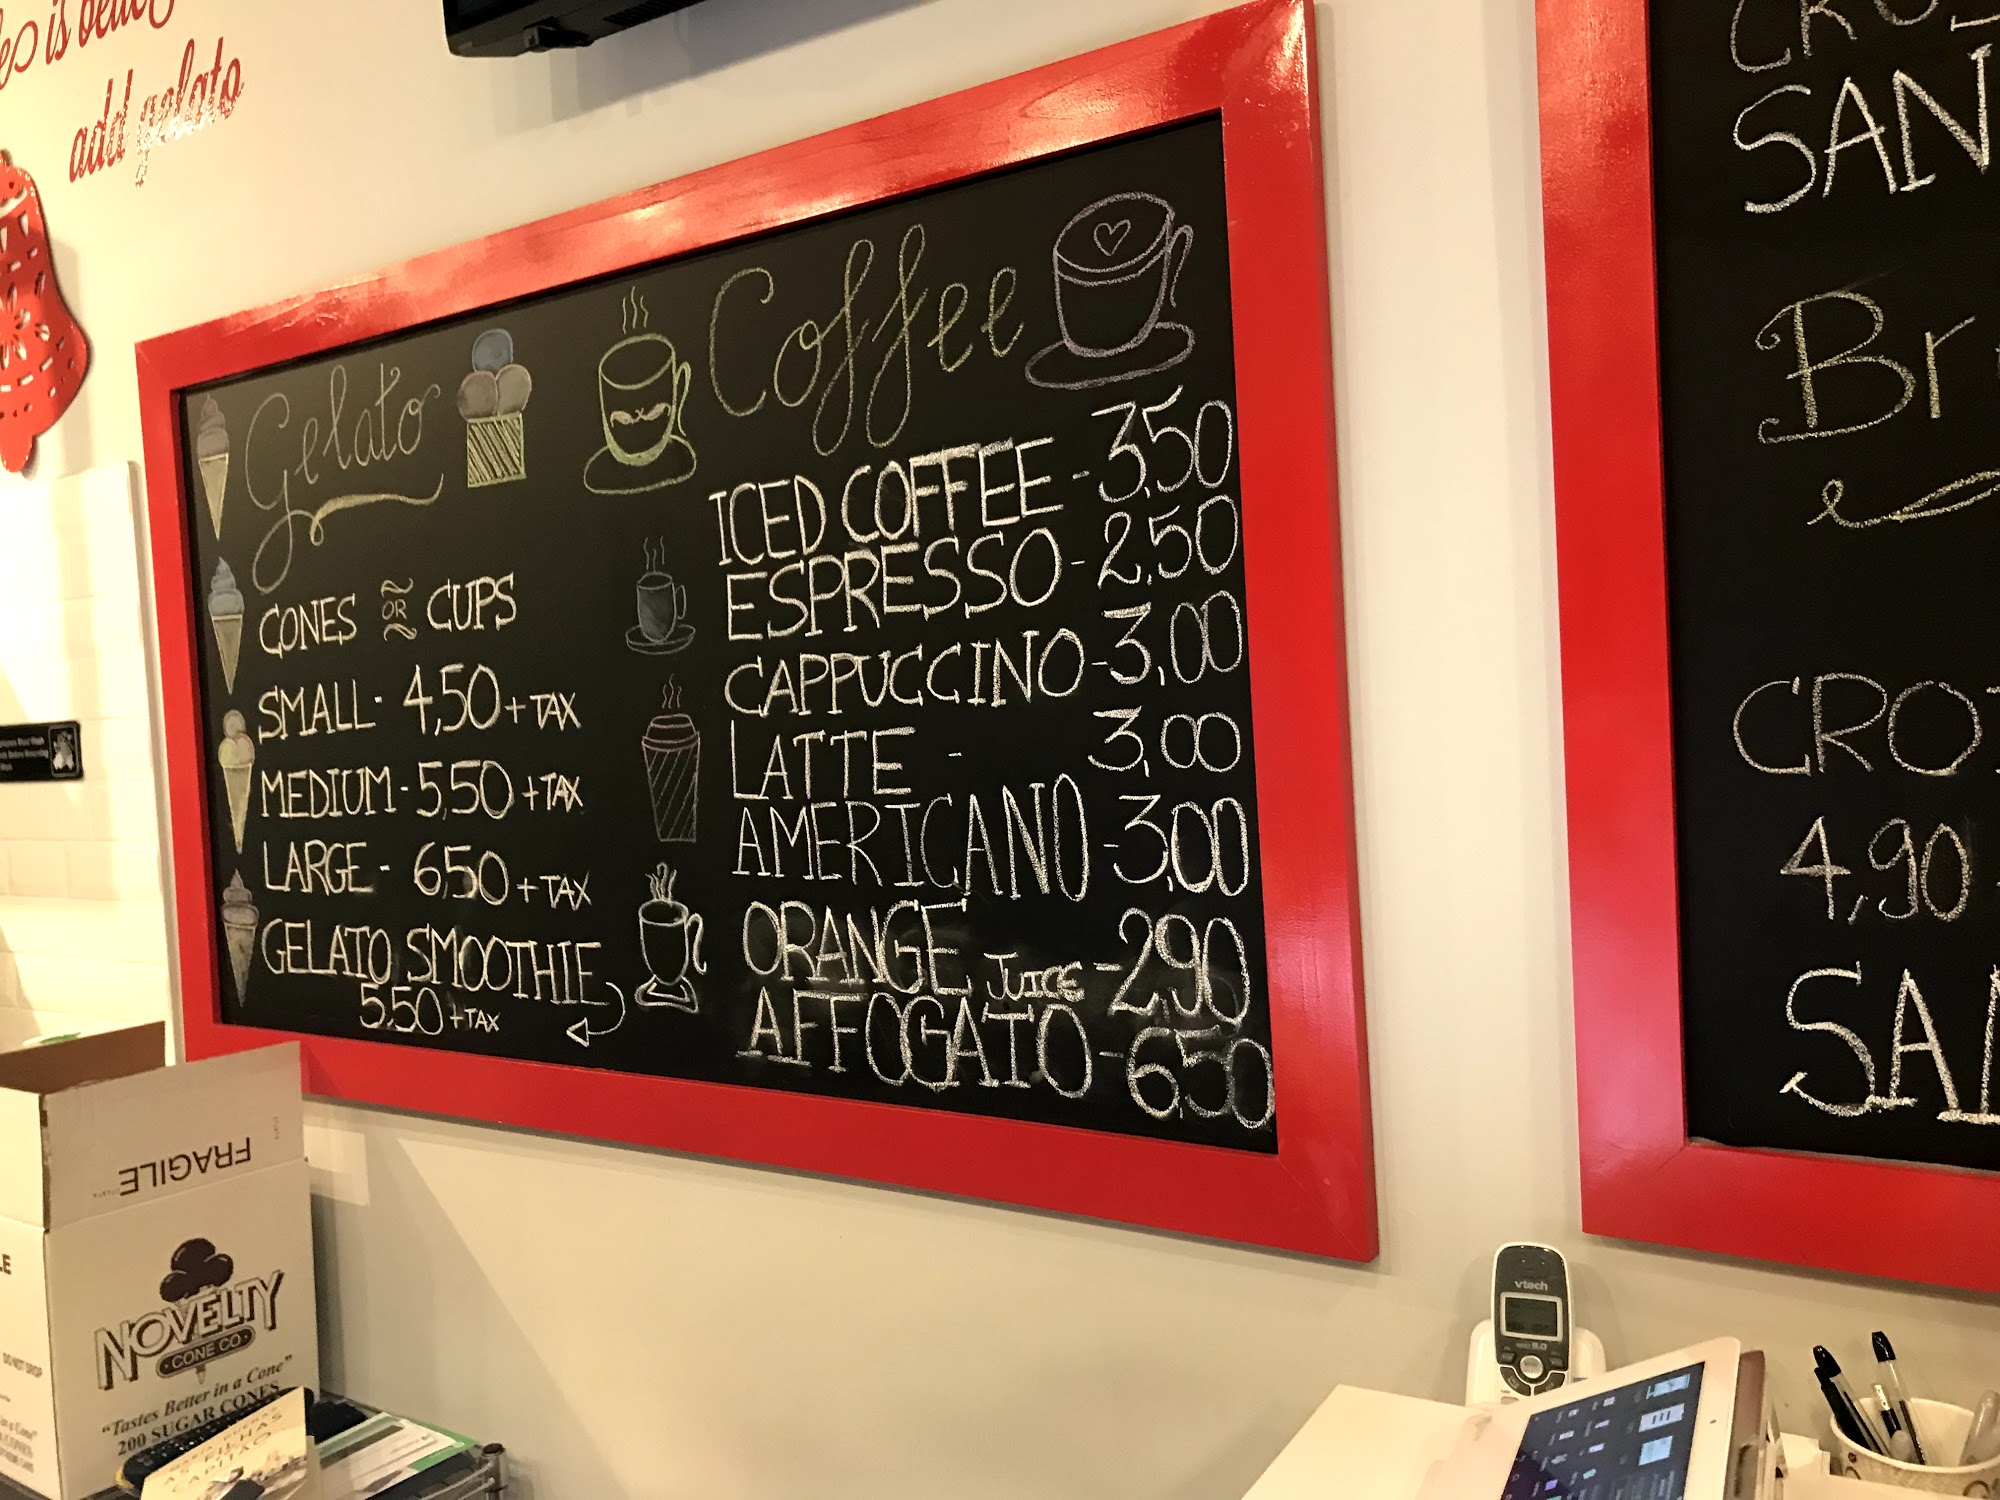 is better
add gelato
Gelato
CONES OR CUPS
SMALL- 4,50 + TAX
MEDIUM- 5,50 + TAX
LARGE- 6,50 + TAX
GELATO SMOOTHIE
5,50 + TAX
Coffee
ICED COFFEE - 3,50
ESPRESSO - 2,50
CAPPUCCINO - 3,00
LATTE - 3,00
AMERICANO - 3,00
ORANGE JUICE - 2,90
AFFOGATO - 6,50
SAN
Br
CRO
4,90
SA
FRAGILE
NOVELTY
CONE CO
"Tastes Better in a Cone"
200 SUGAR CONES
DO NOT DROP
vtech